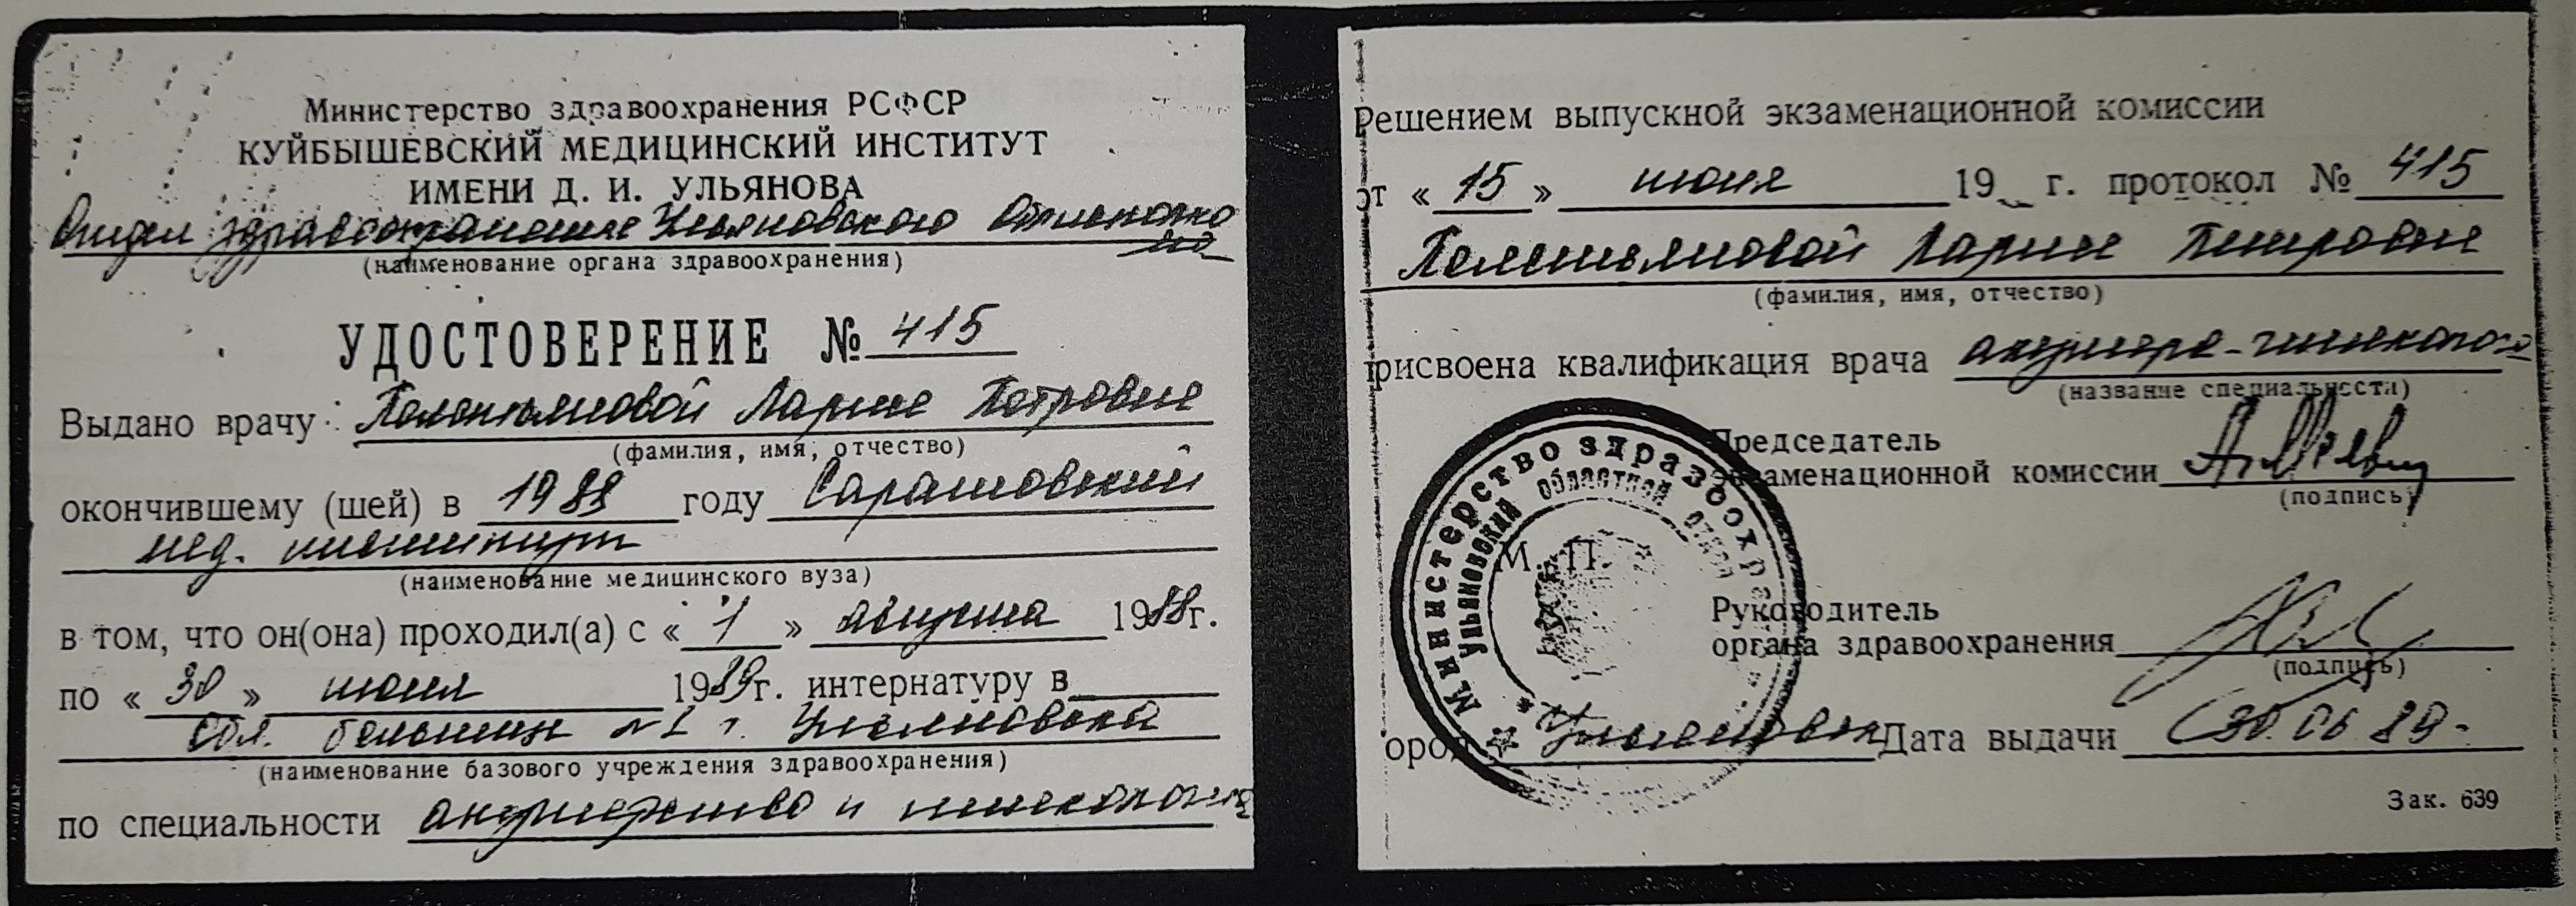 Министерство здравоохранения РСФСР
КУЙБЫШЕВСКИЙ МЕДИЦИНСКИЙ ИНСТИТУТ
ИМЕНИ Д. И. УЛЬЯНОВА
Отдел здравоохранения Ульяновского Облисполко
ма
(наименование органа здравоохранения)
УДОСТОВЕРЕНИЕ № 415
Выдано врачу: Полентьяновой Ларисе Петровне
(фамилия, имя, отчество)
окончившему (шей) в 1988 году Саратовский
мед. институт
(наименование медицинского вуза)
в том, что он(она) проходил(а) с « 1 » августа 1988г.
по « 30 » июня 1989г. интернатуру в
Обл. больнице №1 г. Ульяновска
(наименование базового учреждения здравоохранения)
по специальности акушерство и гинекология
Решением выпускной экзаменационной комиссии
от « 15 » июня 19 г. протокол № 415
Полентьяновой Ларисе Петровне
(фамилия, имя, отчество)
присвоена квалификация врача акушера-гинеколога
(название специальности)
Председатель
экзаменационной комиссии
(подпись)
Министерство здравоохра
Ульяновский областной отдел
М. П.
Руководитель
органа здравоохранения
(подпись)
ород Ульяновск Дата выдачи 30.06 89.
Зак. 639